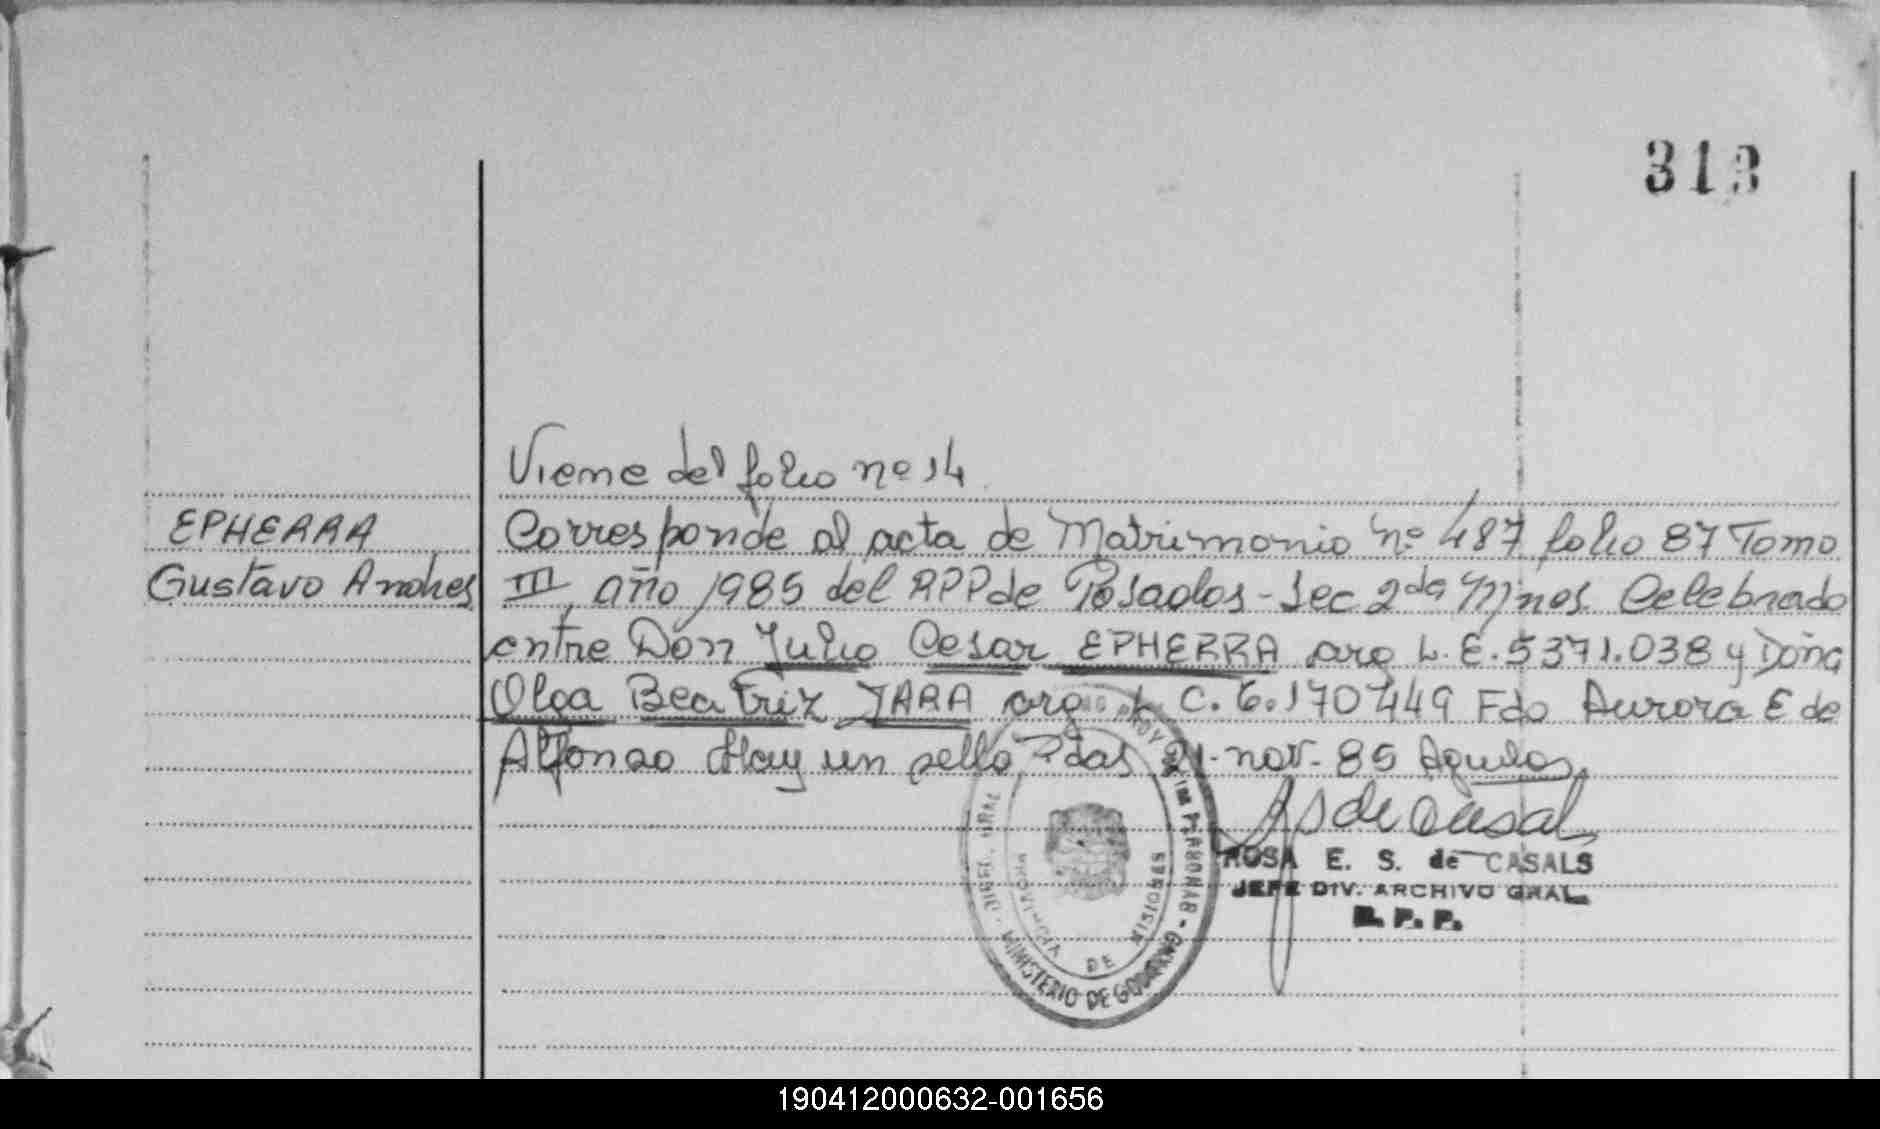 313
Viene del folio nº 14
EPHERRA
Gustavo Andres
Corresponde al acta de Matrimonio nº 487 folio 87 Tomo
III, año 1985 del RPP de Posadas - Sec 2da Mnes. Celebrado
entre Don Julio Cesar EPHERRA arg L.E. 5371.038 y Doña
Olga Beatriz JARA arg L C. 6.170449 Fdo Aurora E de
Alfonso Hay un sello, Pdas 21-nov-85
ROSA E. S. de CASALS
JEFE DIV. ARCHIVO GRAL.
R. P. P.
MINISTERIO DE GOBIERNO
PROVINCIA DE MISIONES
190412000632-001656